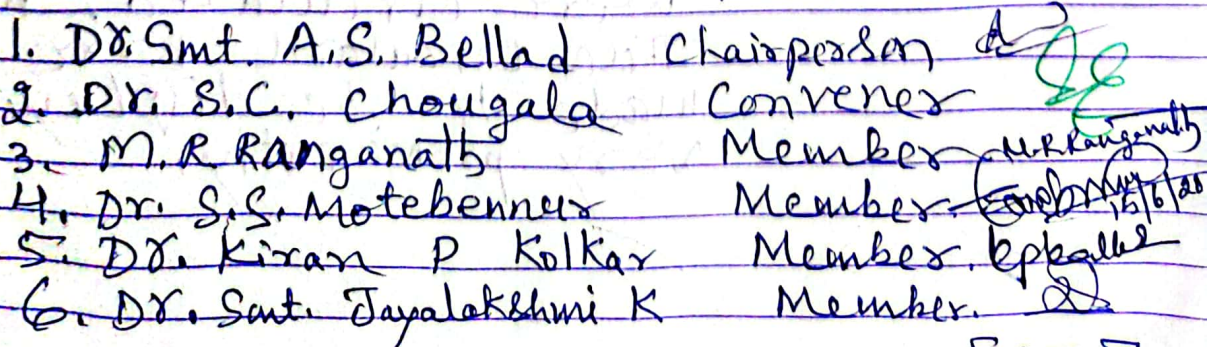 1. Dr. Smt. A.S. Bellad Chairperson
2. Dr. S.C. Chougala Convener
3. M.R. Ranganath Member M.R.Ranganath
4. Dr. S.S. Motebennur Member 15/6/20
5. Dr. Kiran P Kolkar Member.
6. Dr. Smt. Jayalakshmi K Member.